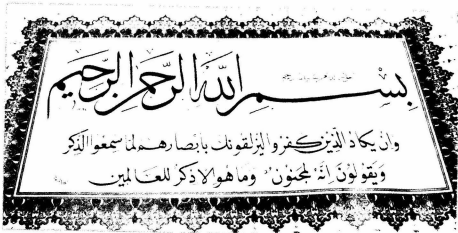 بِسْمِ اللهِ الرَّحْمٰنِ الرَّحِيْمِ
وَاِنْ يَكَادُ الَّذِيْنَ كَفَرُوا لَيُزْلِقُونَكَ بِاَبْصَارِهِمْ لَمَّا سَمِعُوا الذِّكْرَ
وَيَقُولُونَ اِنَّهُ لَمَجْنُونٌ وَمَا هُوَ اِلَّا ذِكْرٌ لِلْعَالَمِينَ